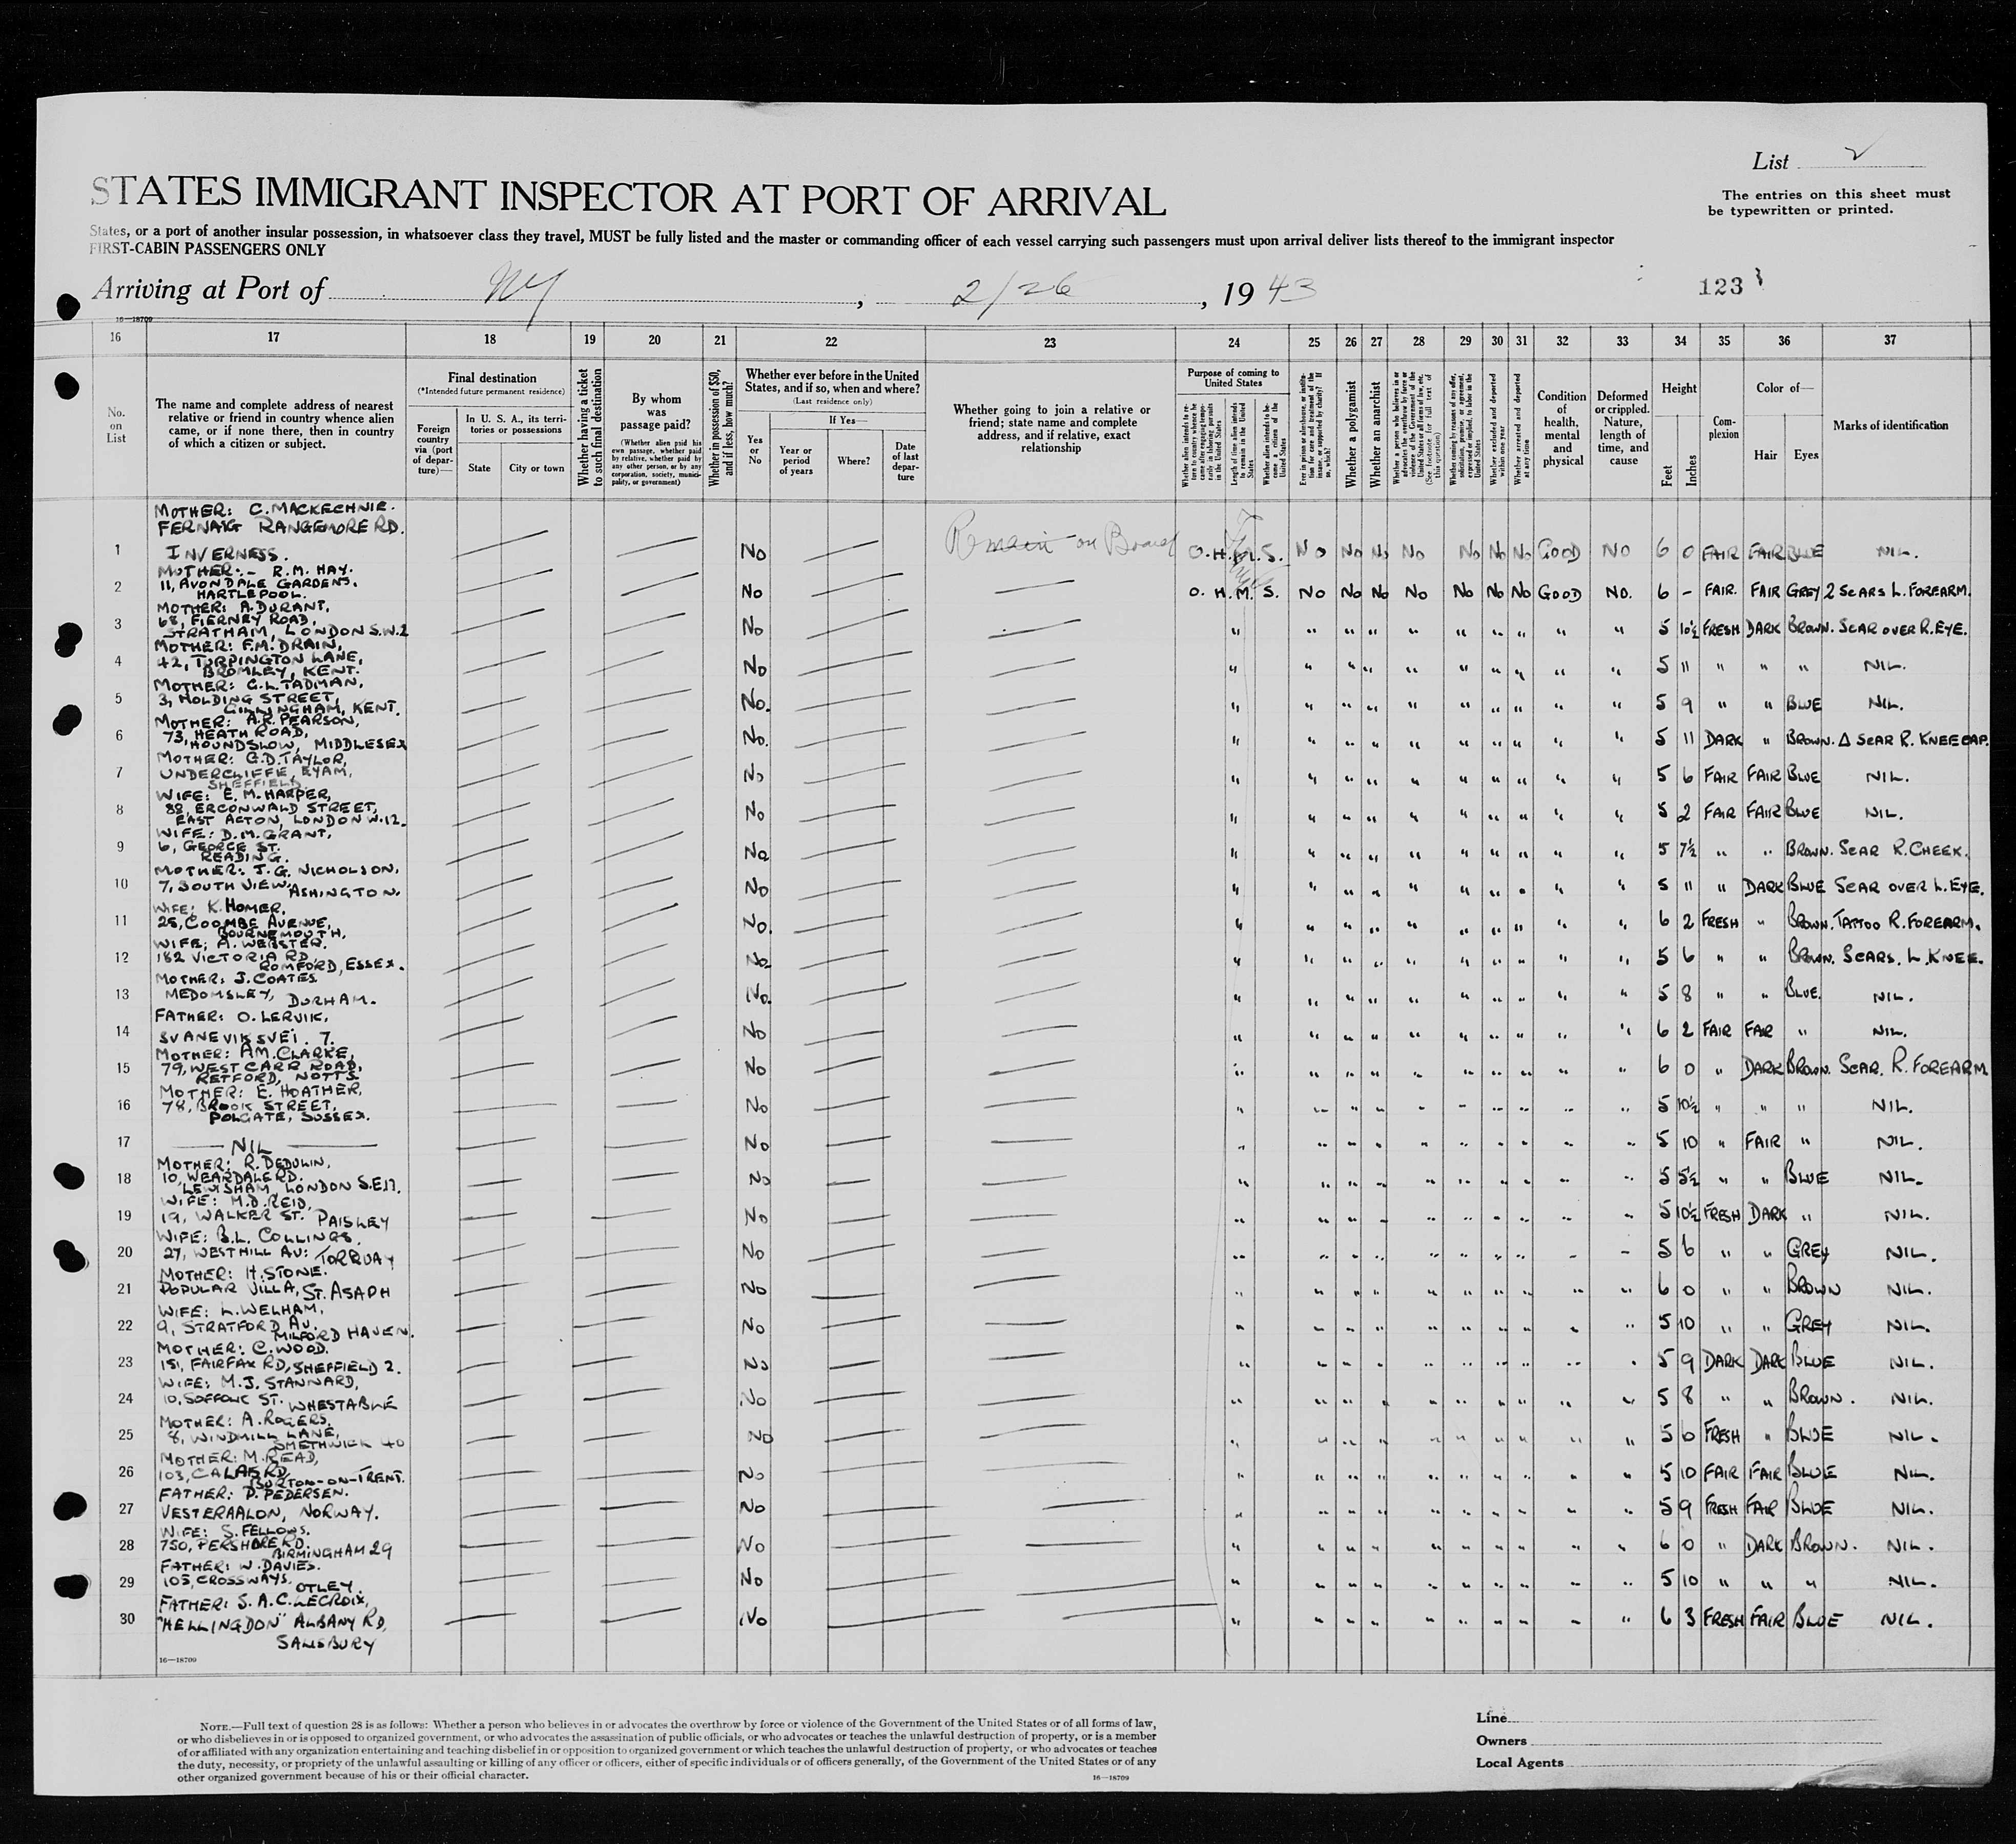 List 2
STATES IMMIGRANT INSPECTOR AT PORT OF ARRIVAL
The entries on this sheet must
be typewritten or printed.
States, or a port of another insular possession, in whatsoever class they travel, MUST be fully listed and the master or commanding officer of each vessel carrying such passengers must upon arrival deliver lists thereof to the immigrant inspector
FIRST-CABIN PASSENGERS ONLY
Arriving at Port of NY, 2/26, 1943
123
16—18709
16 17 18 19 20 21 22 23 24 25 26 27 28 29 30 31 32 33 34 35 36 37
No. on List
The name and complete address of nearest relative or friend in country whence alien came, or if none there, then in country of which a citizen or subject.
Final destination
(*Intended future permanent residence)
Foreign country via (port of departure)—
In U. S. A., its territories or possessions
State
City or town
Whether having a ticket to such final destination
By whom was passage paid?
(Whether alien paid his own passage, whether paid by relative, whether paid by any other person, or by any corporation, society, municipality, or government)
Whether in possession of $50, and if less, how much?
Whether ever before in the United States, and if so, when and where?
(Last residence only)
Yes or No
If Yes—
Year or period of years
Where?
Date of last departure
Whether going to join a relative or friend; state name and complete address, and if relative, exact relationship
Purpose of coming to United States
Whether alien intends to return to country whence he came after engaging temporarily in laboring pursuits in the United States
Length of time alien intends to remain in the United States
Whether alien intends to become a citizen of the United States
Ever in prison or almshouse, or institution for care and treatment of the insane, or supported by charity? If so, which?
Whether a polygamist
Whether an anarchist
Whether a person who believes in or advocates the overthrow by force or violence of the Government of the United States or all forms of law, etc. (See footnote for full text of this question)
Whether coming by reason of any offer, solicitation, promise, or agreement, expressed or implied, to labor in the United States
Whether excluded and deported within one year
Whether arrested and deported at any time
Condition of health, mental and physical
Deformed or crippled. Nature, length of time, and cause
Height
Feet
Inches
Complexion
Color of—
Hair
Eyes
Marks of identification
MOTHER: C. MACKECHNIE.
FERNAIG RANGEMORE RD.
1 INVERNESS. No Remain on Board O.H.M.S. No No No No No No No GOOD NO 6 0 FAIR FAIR BLUE NIL.
MOTHER:- R.M. HAY.
2 11, AVONDALE GARDENS, No O.H.M.S. No No No No No No No GOOD NO. 6 - FAIR. FAIR GREY 2 SCARS L. FOREARM.
HARTLEPOOL.
MOTHER: A. DURANT,
3 68, FIERNEY ROAD, No " " " " " " " " " " 5 10½ FRESH DARK BROWN. SCAR OVER R. EYE.
STRATHAM, LONDON S.W.2
MOTHER: F.M. DRAIN,
4 42, TORPINGTON LANE, No " " " " " " " " " " 5 11 " " " NIL.
BROMLEY, KENT.
MOTHER: C.L. TADMAN,
5 3, HOLDING STREET, No. " " " " " " " " " " 5 9 " " BLUE NIL.
GILLINGHAM, KENT.
MOTHER: A.R. PEARSON,
6 73, HEATH ROAD, No. " " " " " " " " " " 5 11 DARK " BROWN. Δ SCAR R. KNEECAP.
HOUNDSLOW, MIDDLESEX
MOTHER: G.D. TAYLOR,
7 UNDERCLIFFE, EYAM, No " " " " " " " " " " 5 6 FAIR FAIR BLUE NIL.
SHEFFIELD.
WIFE: E.M. HARPER,
8 88, ERCONWALD STREET, No " " " " " " " " " " 5 2 FAIR FAIR BLUE NIL.
EAST ACTON, LONDON W.12.
WIFE: D.M. GRANT,
9 6, GEORGE ST. No " " " " " " " " " " 5 7½ " " BROWN. SCAR R. CHEEK.
READING.
MOTHER: J.G. NICHOLSON,
10 7, SOUTH VIEW, ASHINGTON. No " " " " " " " " " " 5 11 " DARK BLUE SCAR OVER L. EYE.
WIFE: K. HOMER,
11 25, COOMBE AVENUE, No. " " " " " " " " " " 6 2 FRESH " BROWN. TATTOO R. FOREARM.
BOURNEMOUTH.
WIFE; A. WEBSTER.
12 182 VICTORIA RD No. " " " " " " " " " " 5 6 " " BROWN. SCARS. L. KNEE.
ROMFORD, ESSEX.
MOTHER: J. COATES
13 MEDOMSLEY, DURHAM. No. " " " " " " " " " " 5 8 " " BLUE. NIL.
FATHER: O. LERVIK,
14 SVANEVIKSVEI. 7. No " " " " " " " " " " 6 2 FAIR FAIR " NIL.
MOTHER: A.M. CLARKE,
15 79, WEST CARR ROAD, No " " " " " " " " " " 6 0 " DARK BROWN. SCAR. R. FOREARM.
RETFORD, NOTTS
MOTHER: E. HOATHER,
16 78, BROOK STREET, No " " " " " " " " " " 5 10½ " " " NIL.
POLGATE, SUSSEX.
17 NIL No " " " " " " " " " " 5 10 " FAIR " NIL.
MOTHER: R. DEDULIN,
18 10, WEARDALE RD. No " " " " " " " " " " 5 5½ " " BLUE NIL.
LEWISHAM, LONDON S.E.13.
WIFE: M.D. REID,
19 19, WALKER ST. PAISLEY No " " " " " " " " " " 5 10½ FRESH DARK " NIL.
WIFE: B.L. COLLINGS,
20 27, WESTHILL AV: TORQUAY No " " " " " " " " " " 5 6 " " GREY NIL.
MOTHER: H. STONE.
21 POPULAR VILLA, ST. ASAPH No " " " " " " " " " " 6 0 " " BROWN NIL.
WIFE: L. WELHAM,
22 9, STRATFORD AV. No " " " " " " " " " " 5 10 " " GREY NIL.
MILFORD HAVEN.
MOTHER: C. WOOD.
23 151, FAIRFAX RD, SHEFFIELD 2. No " " " " " " " " " " 5 9 DARK DARK BLUE NIL.
WIFE: M.J. STANNARD,
24 10, SOFFOLK ST. WHESTABLE No " " " " " " " " " " 5 8 " " BROWN. NIL.
MOTHER: A. ROGERS,
25 8, WINDMILL LANE, No " " " " " " " " " " 5 6 FRESH " BLUE NIL.
SMETHWICK 40
MOTHER: M. READ,
26 103, CALAIS RD, No " " " " " " " " " " 5 10 FAIR FAIR BLUE NIL.
BURTON-ON-TRENT.
FATHER: D. PEDERSEN.
27 VESTERAALON, NORWAY. No " " " " " " " " " " 5 9 FRESH FAIR BLUE NIL.
WIFE: S. FELLOWS.
28 750, PERSHORE RD. No " " " " " " " " " " 6 0 " DARK BROWN. NIL.
BIRMINGHAM 29
FATHER: W. DAVIES.
29 103, CROSSWAYS. OTLEY. No " " " " " " " " " " 5 10 " " " NIL.
FATHER: S.A.C. LECROIX,
30 "HELLINGDON" ALBANY RD, No " " " " " " " " " " 6 3 FRESH FAIR BLUE NIL.
SALISBURY
16—18709
NOTE.—Full text of question 28 is as follows: Whether a person who believes in or advocates the overthrow by force or violence of the Government of the United States or of all forms of law,
or who disbelieves in or is opposed to organized government, or who advocates the assassination of public officials, or who advocates or teaches the unlawful destruction of property, or is a member
of or affiliated with any organization entertaining and teaching disbelief in or opposition to organized government or which teaches the unlawful destruction of property, or who advocates or teaches
the duty, necessity, or propriety of the unlawful assaulting or killing of any officer or officers, either of specific individuals or of officers generally, of the Government of the United States or of any
other organized government because of his or their official character.
16—18709
Line
Owners
Local Agents